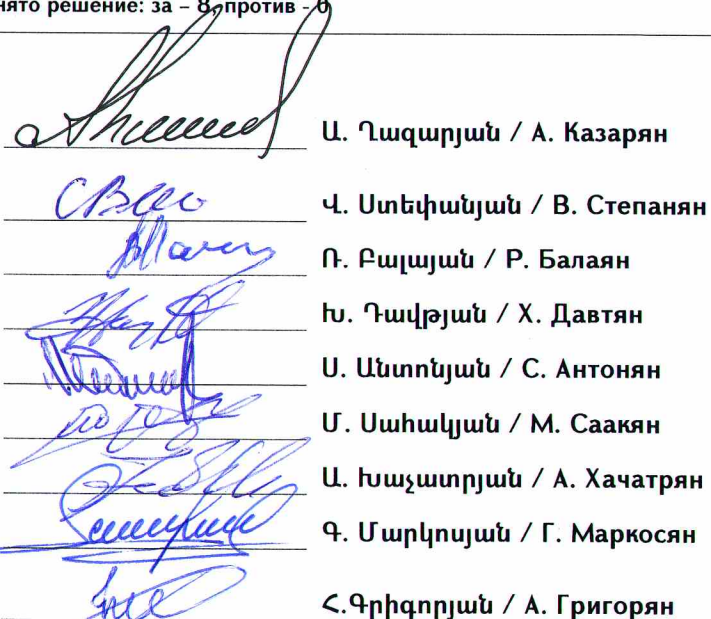 нято решение: за – 8, против - 0
Ա. Ղազարյան / А. Казарян
Վ. Ստեփանյան / В. Степанян
Ռ. Բալայան / Р. Балаян
Խ. Դավթյան / Х. Давтян
Ս. Անտոնյան / С. Антонян
Մ. Սահակյան / М. Саакян
Ա. Խաչատրյան / А. Хачатрян
Գ. Մարկոսյան / Г. Маркосян
Հ.Գրիգորյան / А. Григорян